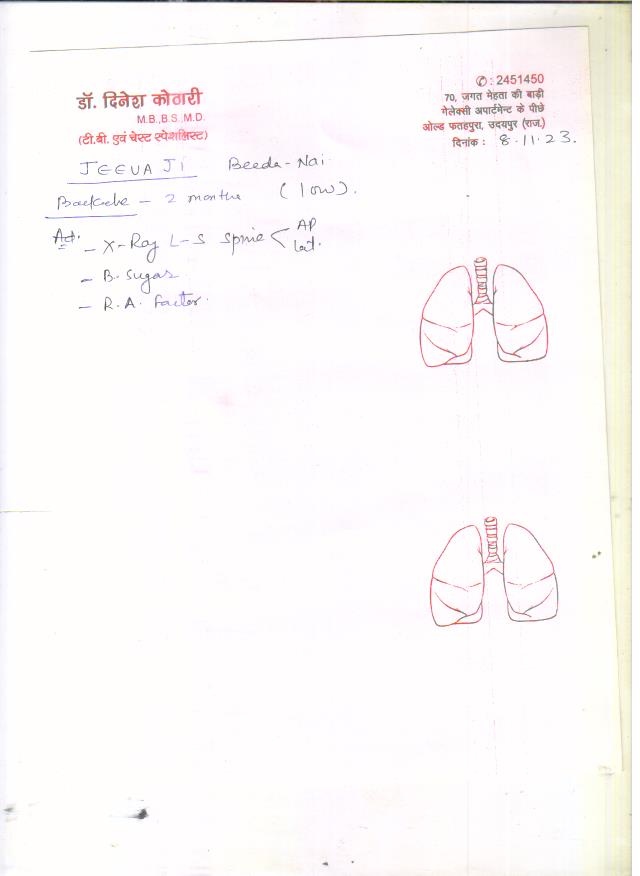 डॉ. दिनेश कोठारी
M.B.,B.S.,M.D.
(टी.बी. एवं चेस्ट स्पेशलिस्ट)
✆ : 2451450
70, जगत मेहता की बाड़ी
गेलेक्सी अपार्टमेन्ट के पीछे
ओल्ड फतहपुरा, उदयपुर (राज.)
दिनांक : 8.11.23.
JEEVA JI Beeda-Nai
Backache - 2 months (low).
Ad.
- X-Ray L-S Spine < AP
Lat.
- B. Sugar
- R.A. Factor.